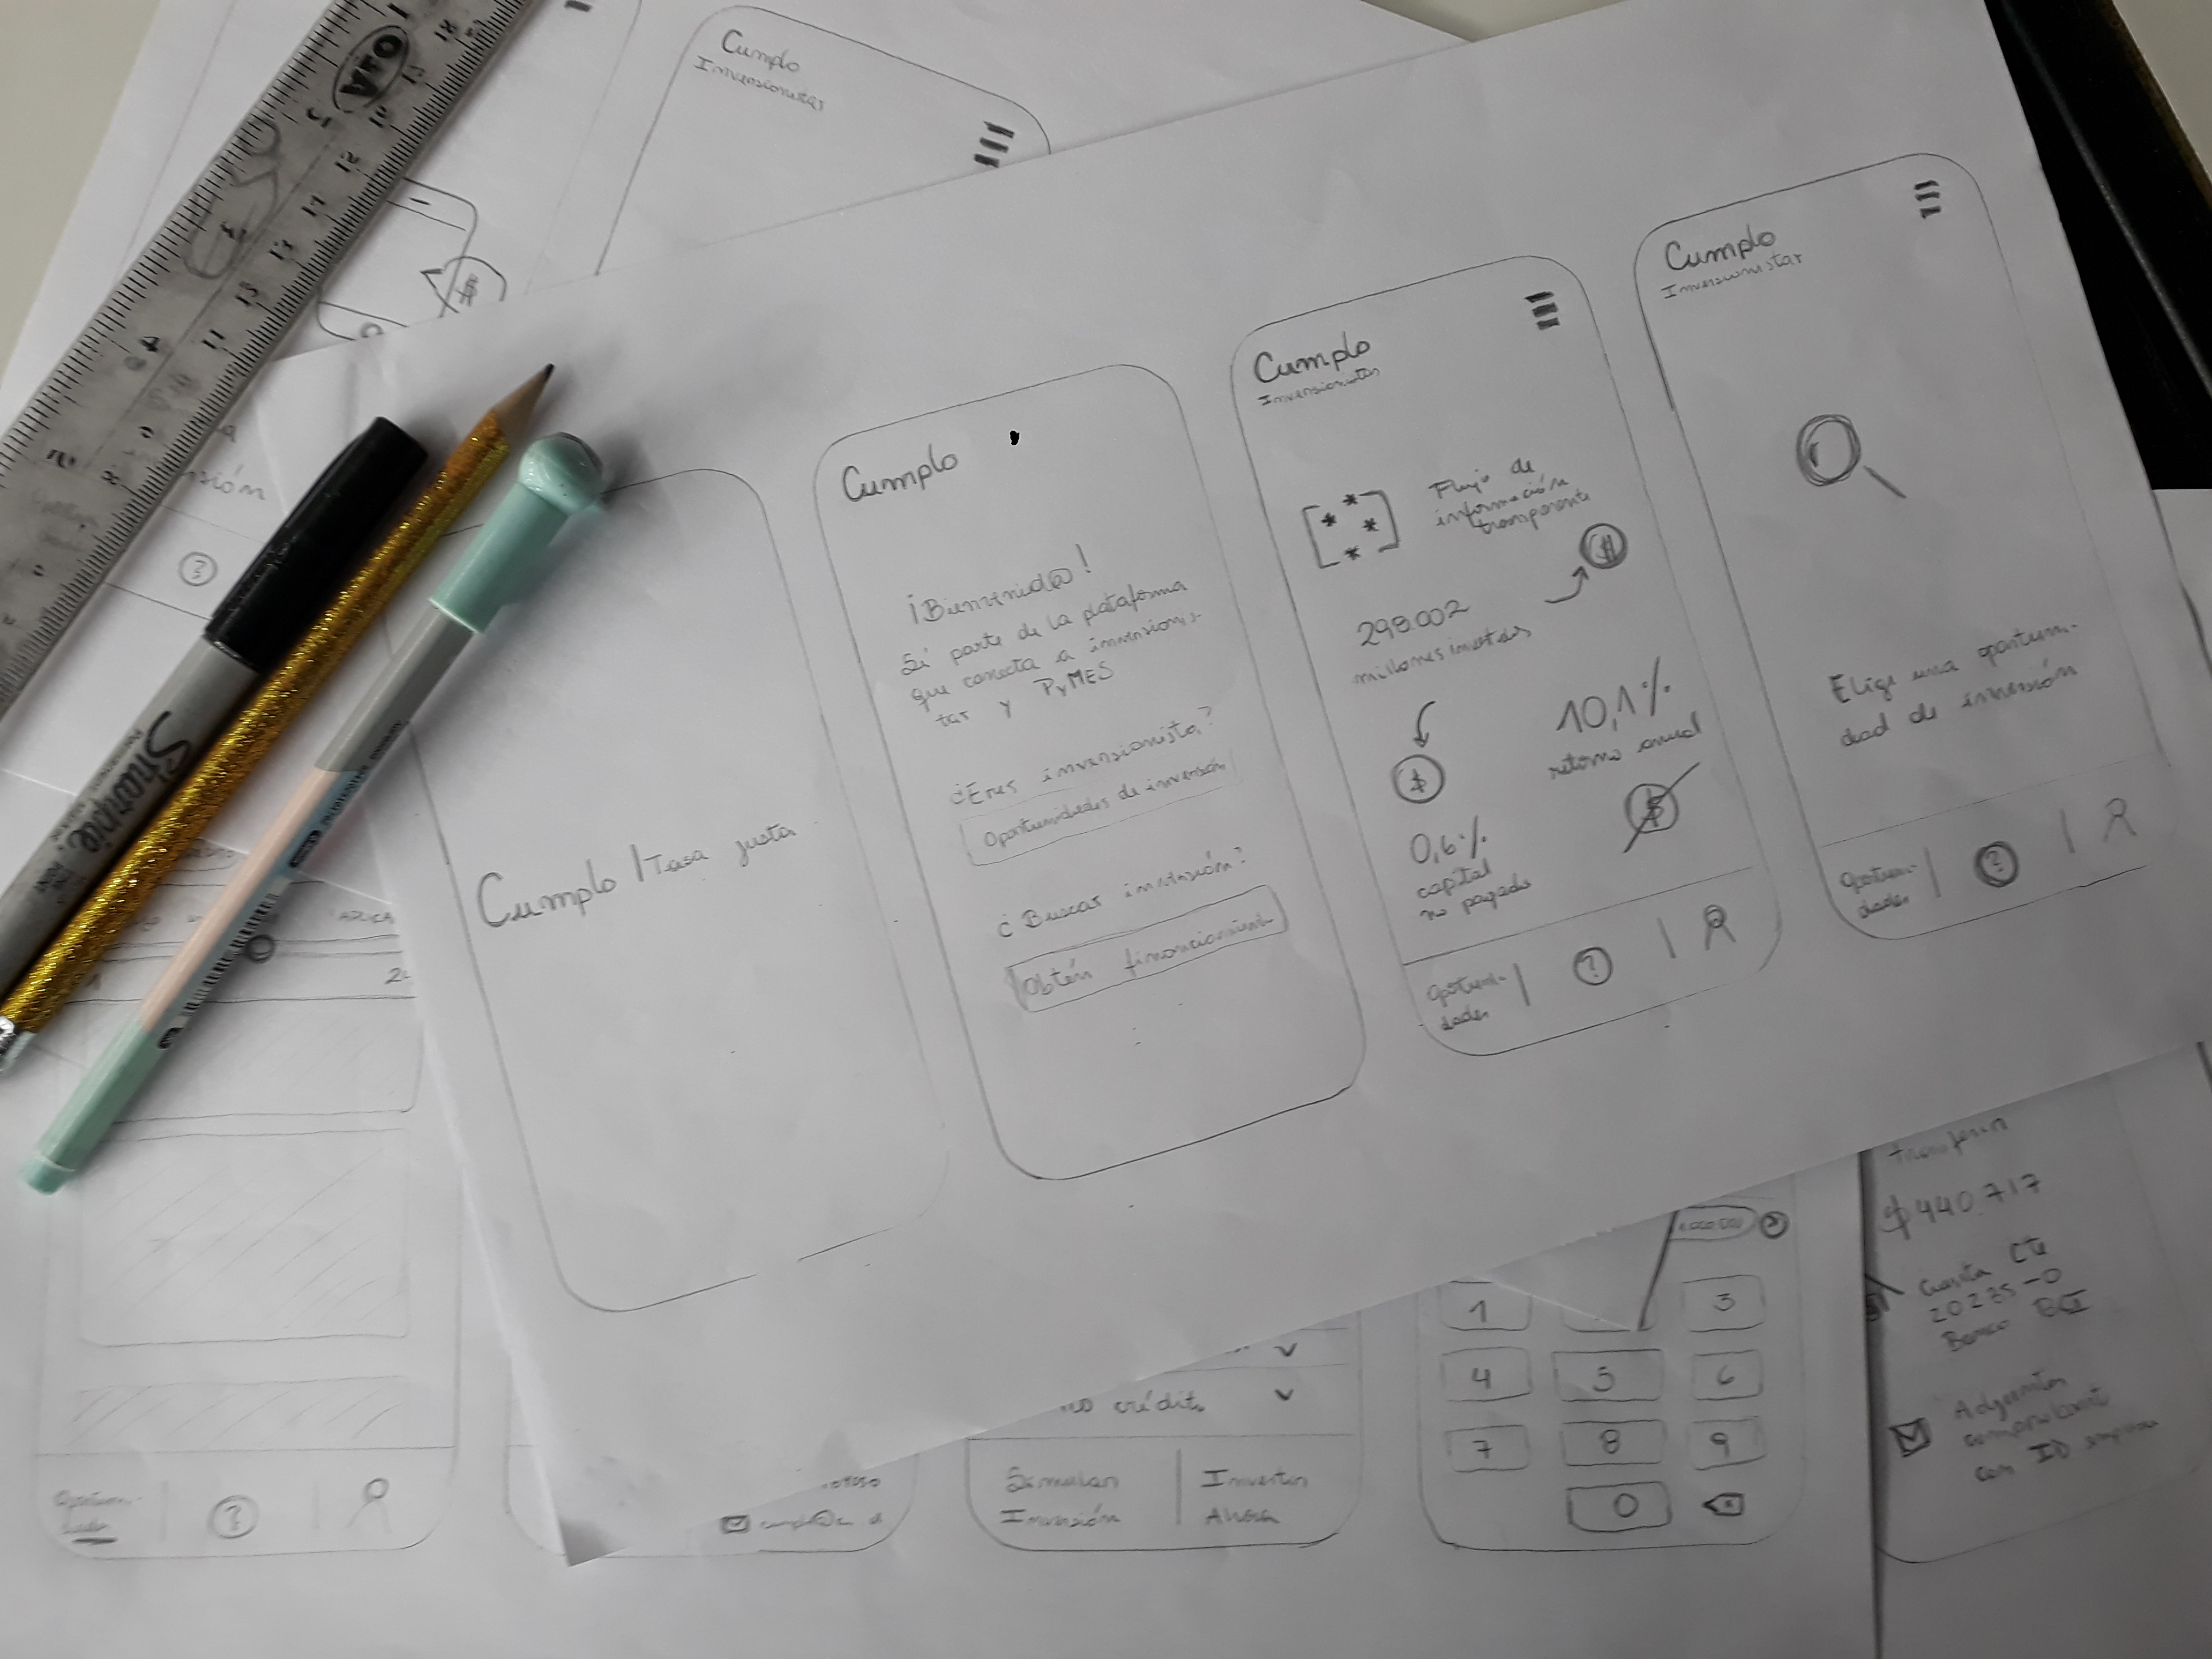 Cumplo
Inversionistas
Cumplo | Tasa justa
Cumplo
¡Bienvenid@!
Sé parte de la plataforma
que conecta a inversionis-
tas y PyMES
¿Eres inversionista?
Oportunidades de inversión
¿Buscas inversión?
Obtén financiamiento
Cumplo
Inversionistas
Flujo de
información
transparente
$
298.002
millones invertidos
$
10,1%
retorno anual
0,6%
capital
no pagado
$
Oportuni-
dades
?
Cumplo
Inversionistas
Elige una oportuni-
dad de inversión
Oportuni-
dades
?
$
?
Sharpie
APLICA
Oportuni-
dades
?
crédito
Simular
Inversión
Invertir
Ahora
1
3
4
5
6
7
8
9
0
$440.717
Cuenta Cte
20235-0
Banco BCI
con ID